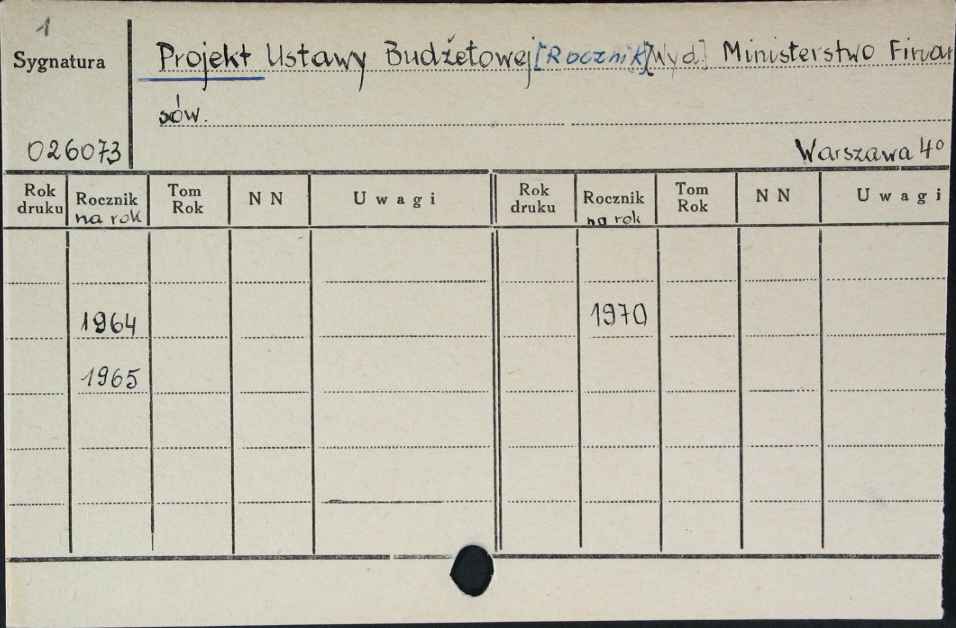 1
Sygnatura
Projekt Ustawy Budżetowej [Rocznik] [Wyd] Ministerstwo Finan
sów.
026073
Warszawa 4º
Rok druku Rocznik na rok Tom Rok N N Uwagi Rok druku Rocznik na rok Tom Rok N N Uwagi
1964 1970
1965